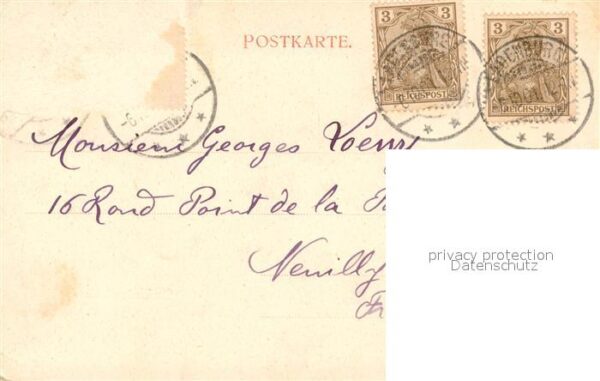 POSTKARTE.
3 3
REICHSPOST
3 3
REICHSPOST
Monsieur Georges
16 Rond Point de la
Neuilly
privacy protection
Datenschutz